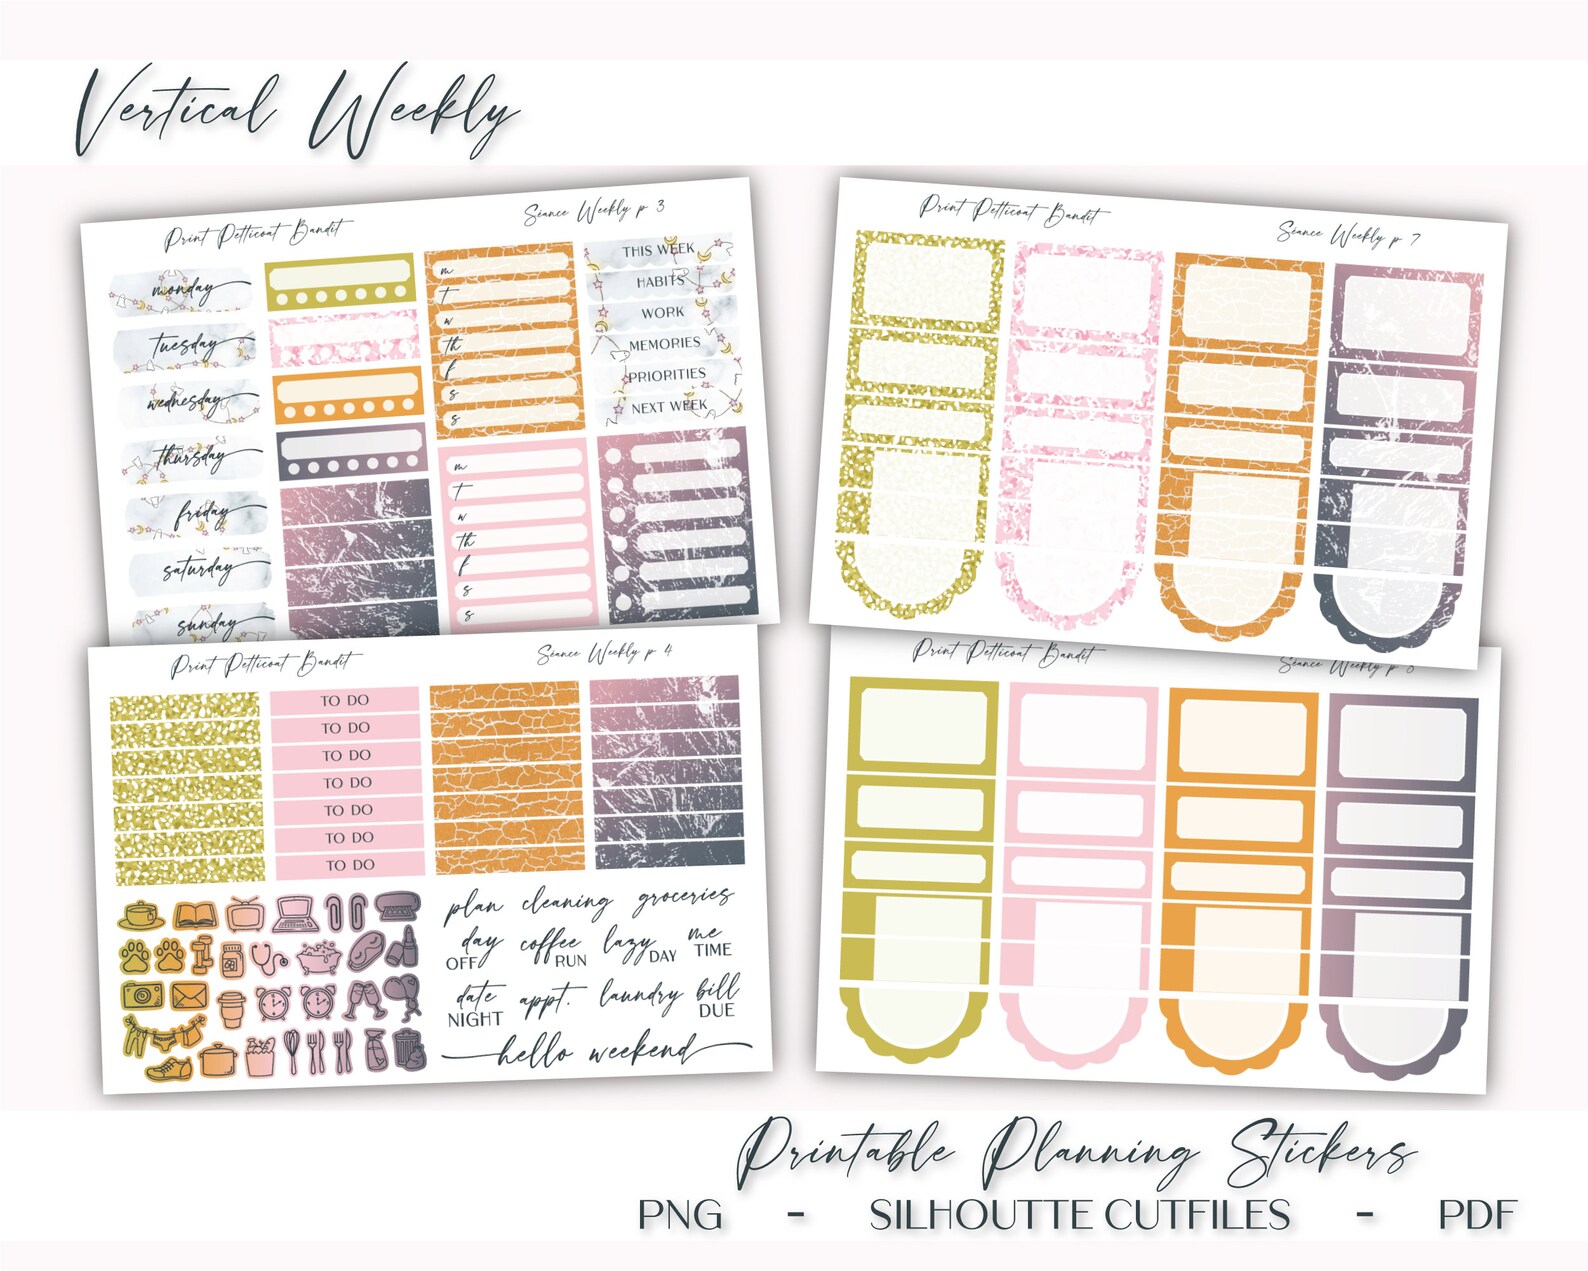 Vertical Weekly
Print Petticoat Bandit
Séance Weekly p 3
monday
tuesday
wednesday
thursday
friday
saturday
sunday
m
T
w
th
f
s
s
m
T
w
th
f
s
s
THIS WEEK
HABITS
WORK
MEMORIES
PRIORITIES
NEXT WEEK
Print Petticoat Bandit
Séance Weekly p 7
Print Petticoat Bandit
Séance Weekly p 4
TO DO
TO DO
TO DO
TO DO
TO DO
TO DO
TO DO
plan cleaning groceries
day OFF coffee RUN lazy DAY me TIME
date NIGHT appt. laundry bill DUE
hello weekend
Print Petticoat Bandit
Séance Weekly p
Printable Planning Stickers
PNG - SILHOUTTE CUTFILES - PDF